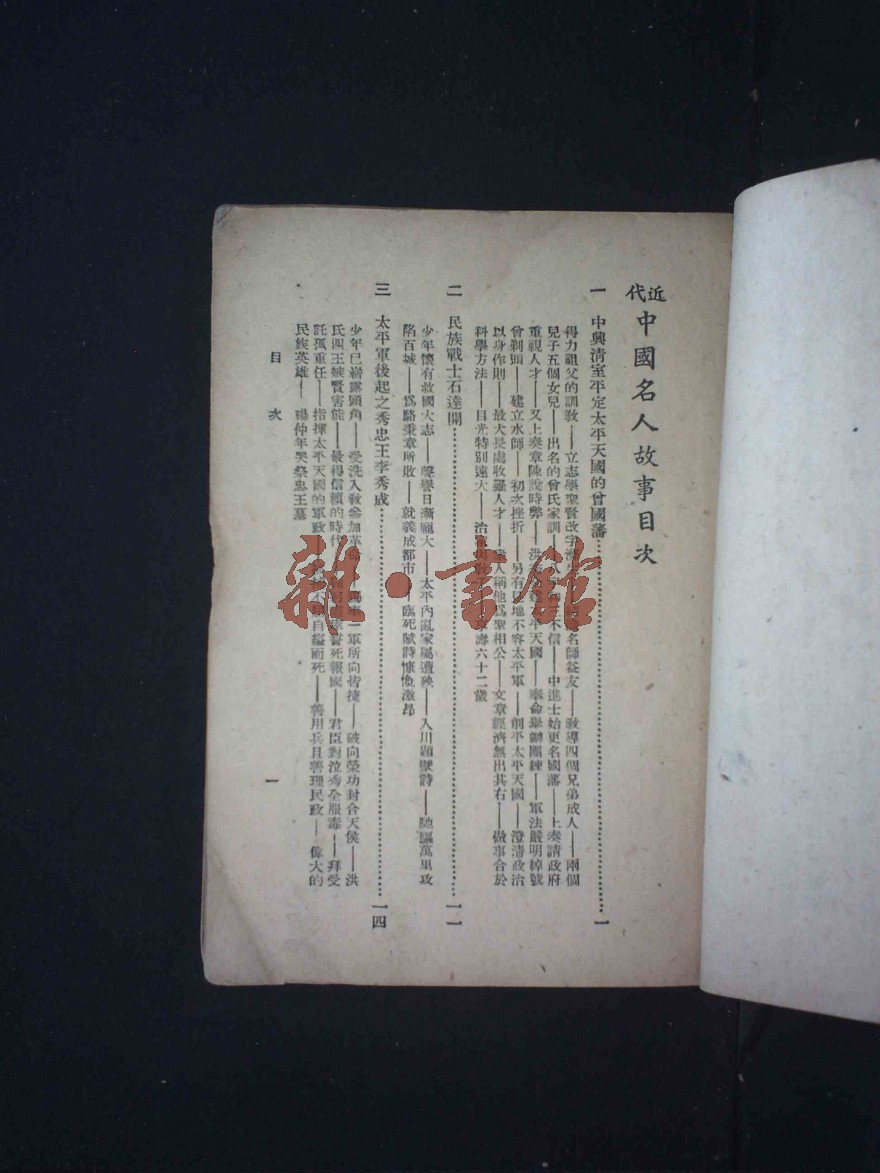 近代中國名人故事目次
一 中興清室平定太平天國的曾國藩……一
得力祖父的訓教——立志學聖賢改字滌 名師益友——教導四個兄弟成人——兩個
兒子五個女兒——出名的曾氏家訓 三不信——中進士始更名國藩——上奏請政府
重視人才——又上奏章陳說時弊——洪 太平天國——奉命舉辦團練——軍法嚴明綽號
曾剃頭——建立水師——初次挫折——另有 地不容太平軍——削平太平天國——澄清政治
以身作則——最大長處收羅人才—— 人稱他爲聖相公——文章經濟無出其右——做事合於
科學方法——目光特別遠大——治 壽六十二歲
二 民族戰士石達開……一一
少年懷有救國大志——聲譽日漸龐大——太平內亂家屬遭殃——入川題壁詩——馳驅萬里攻
陷百城——爲駱秉章所敗——就義成都市——臨死賦詩慷慨激昂
三 太平軍後起之秀忠王李秀成……一四
少年已嶄露頭角——受洗入教參加革命 一軍所向皆捷——破向榮功封合天侯——洪
氏四王嫉賢害能——最得信賴的時代 誓死報國——君臣對泣秀全服毒——拜受
託孤重任——指揮太平天國的軍政 自縊而死——善用兵且善理民政——偉大的
民族英雄——楊仲年哭祭忠王墓
目次
一
雜·書館